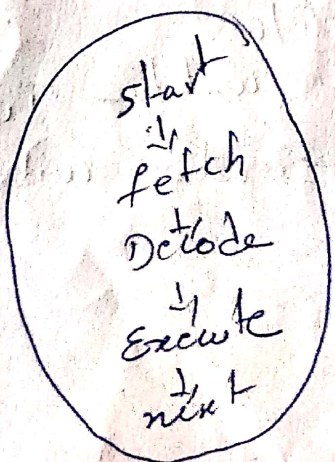 start
↓
fetch
Decode
↓
Execute
↓
next